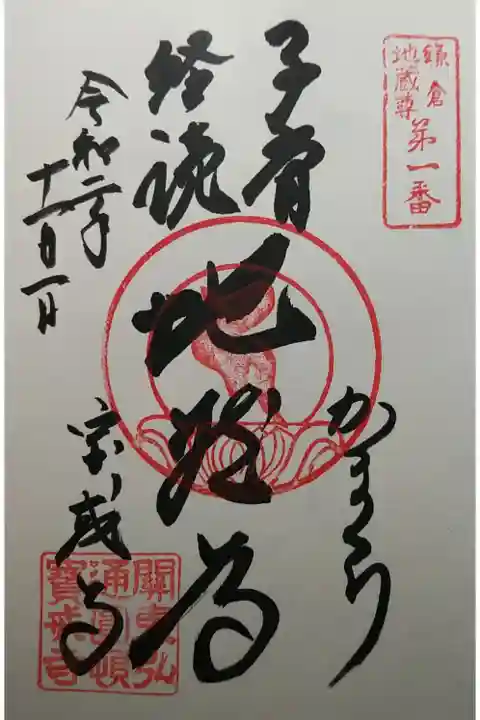 鎌倉
地蔵尊
第一番
子育
経読
地蔵尊
かまくら
令和二年
十一月一日
宝戒寺
關東弘
通圓頓
寶戒寺